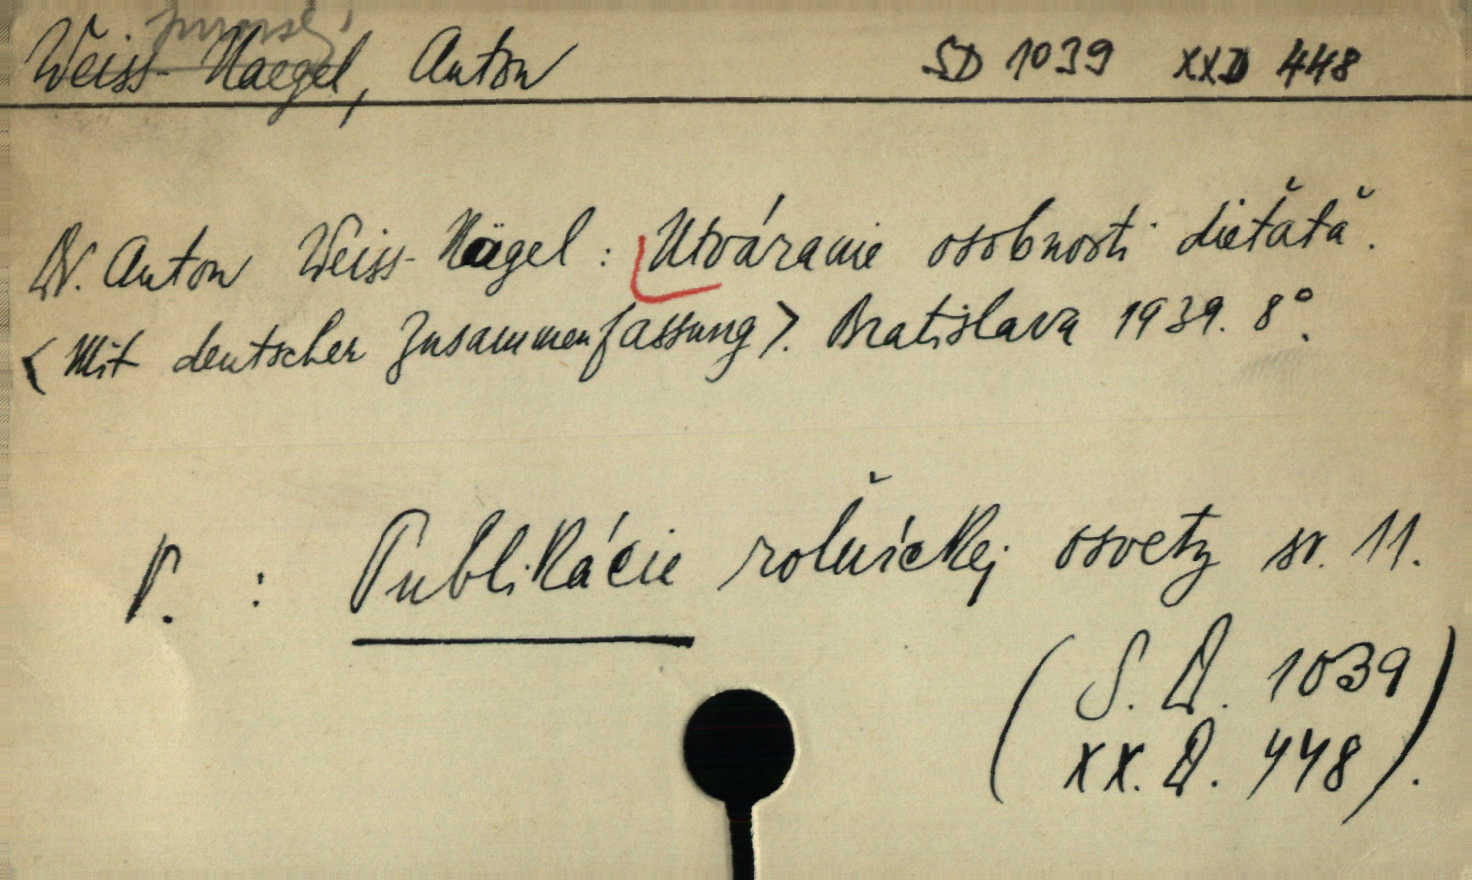 Weiss-Naegel, Anton SD 1039 XXD 448
Dr. Anton Weiss-Nägel: Utváranie osobnosti dieťaťa.
<Mit deutscher Zusammenfassung>. Bratislava 1939. 8°.
P. : Publikácie roľníckej osvety sv. 11.
(S. D. 1039
XX. D. 448).